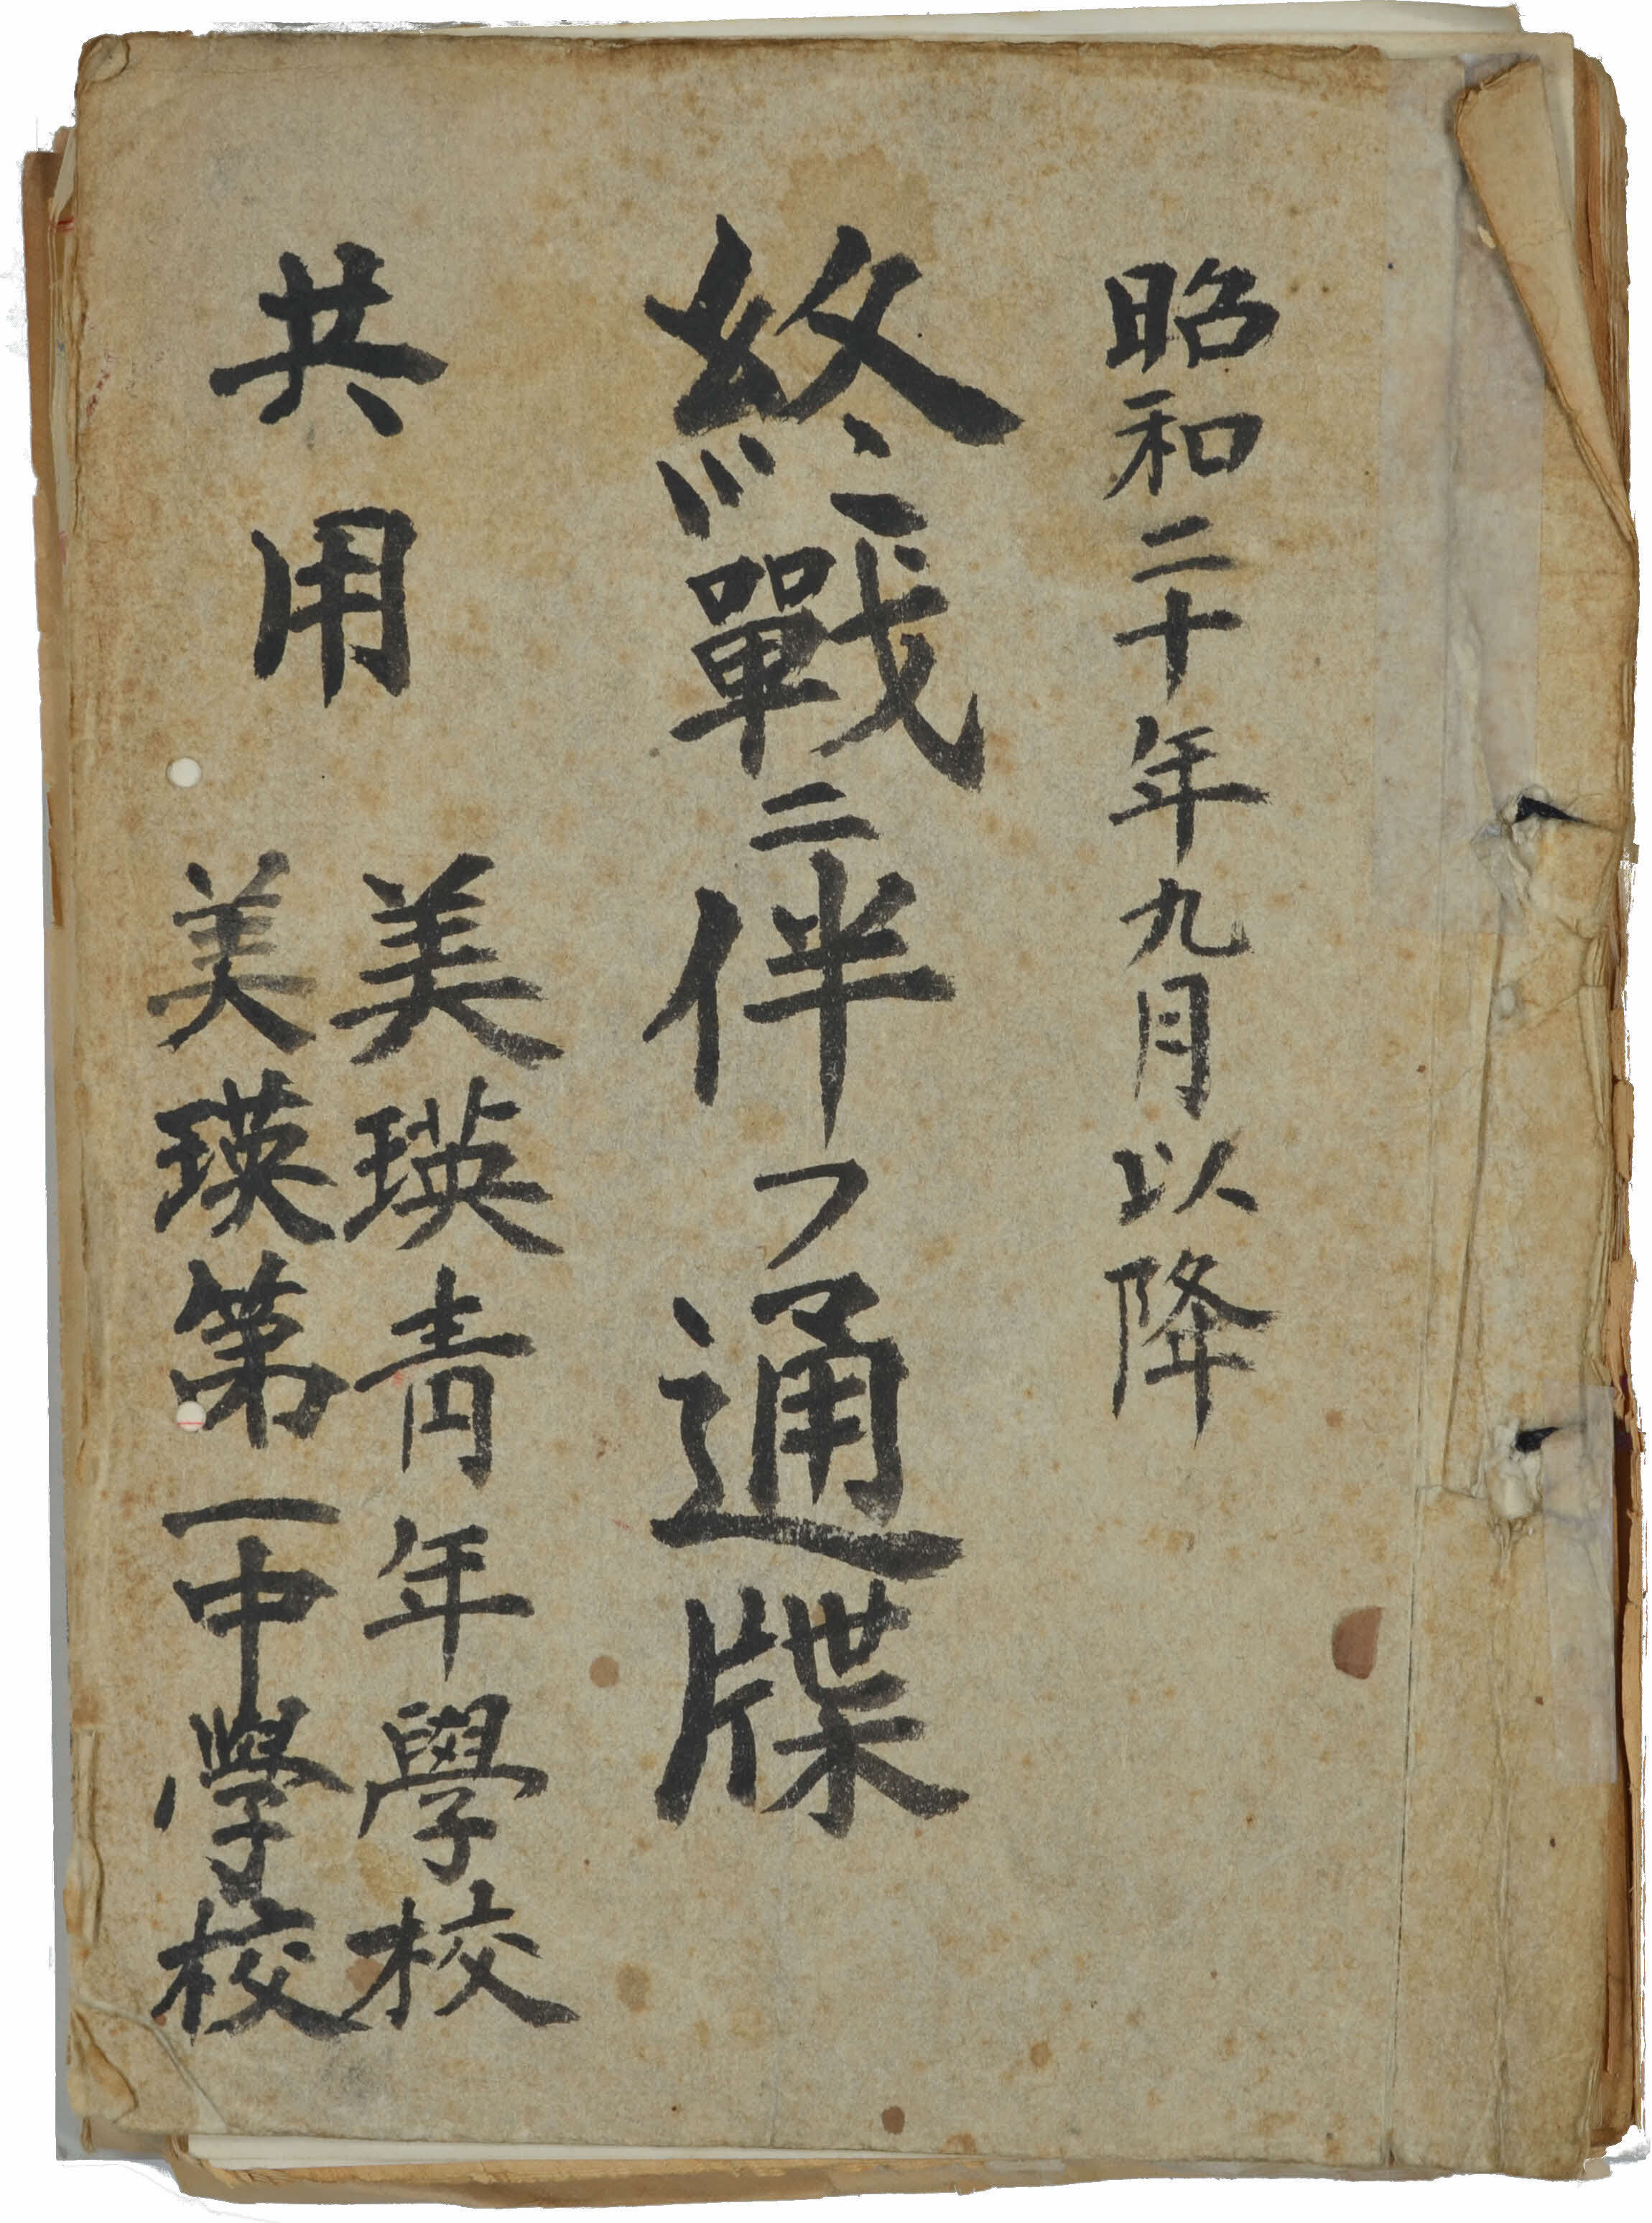 昭和二十年九月以降
終戰ニ伴フ通牒
共用
美瑛青年學校
美瑛第一中學校